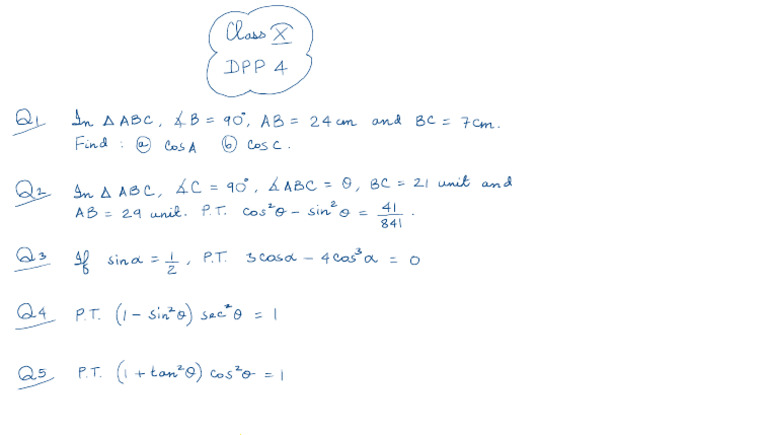 Class X
DPP 4
Q1 In △ ABC, ∡B = 90°, AB = 24 cm and BC = 7 cm.
Find : ⓐ cosA ⓑ cosC.
Q2 In △ ABC, ∡C = 90°, ∡ABC = θ, BC = 21 unit and
AB = 29 unit. P.T. cos²θ – sin²θ = 41/841.
Q3 If sinα = 1/2, P.T. 3cosα – 4cos³α = 0
Q4 P.T. (1 – sin²θ) sec²θ = 1
Q5 P.T. (1 + tan²θ) cos²θ = 1